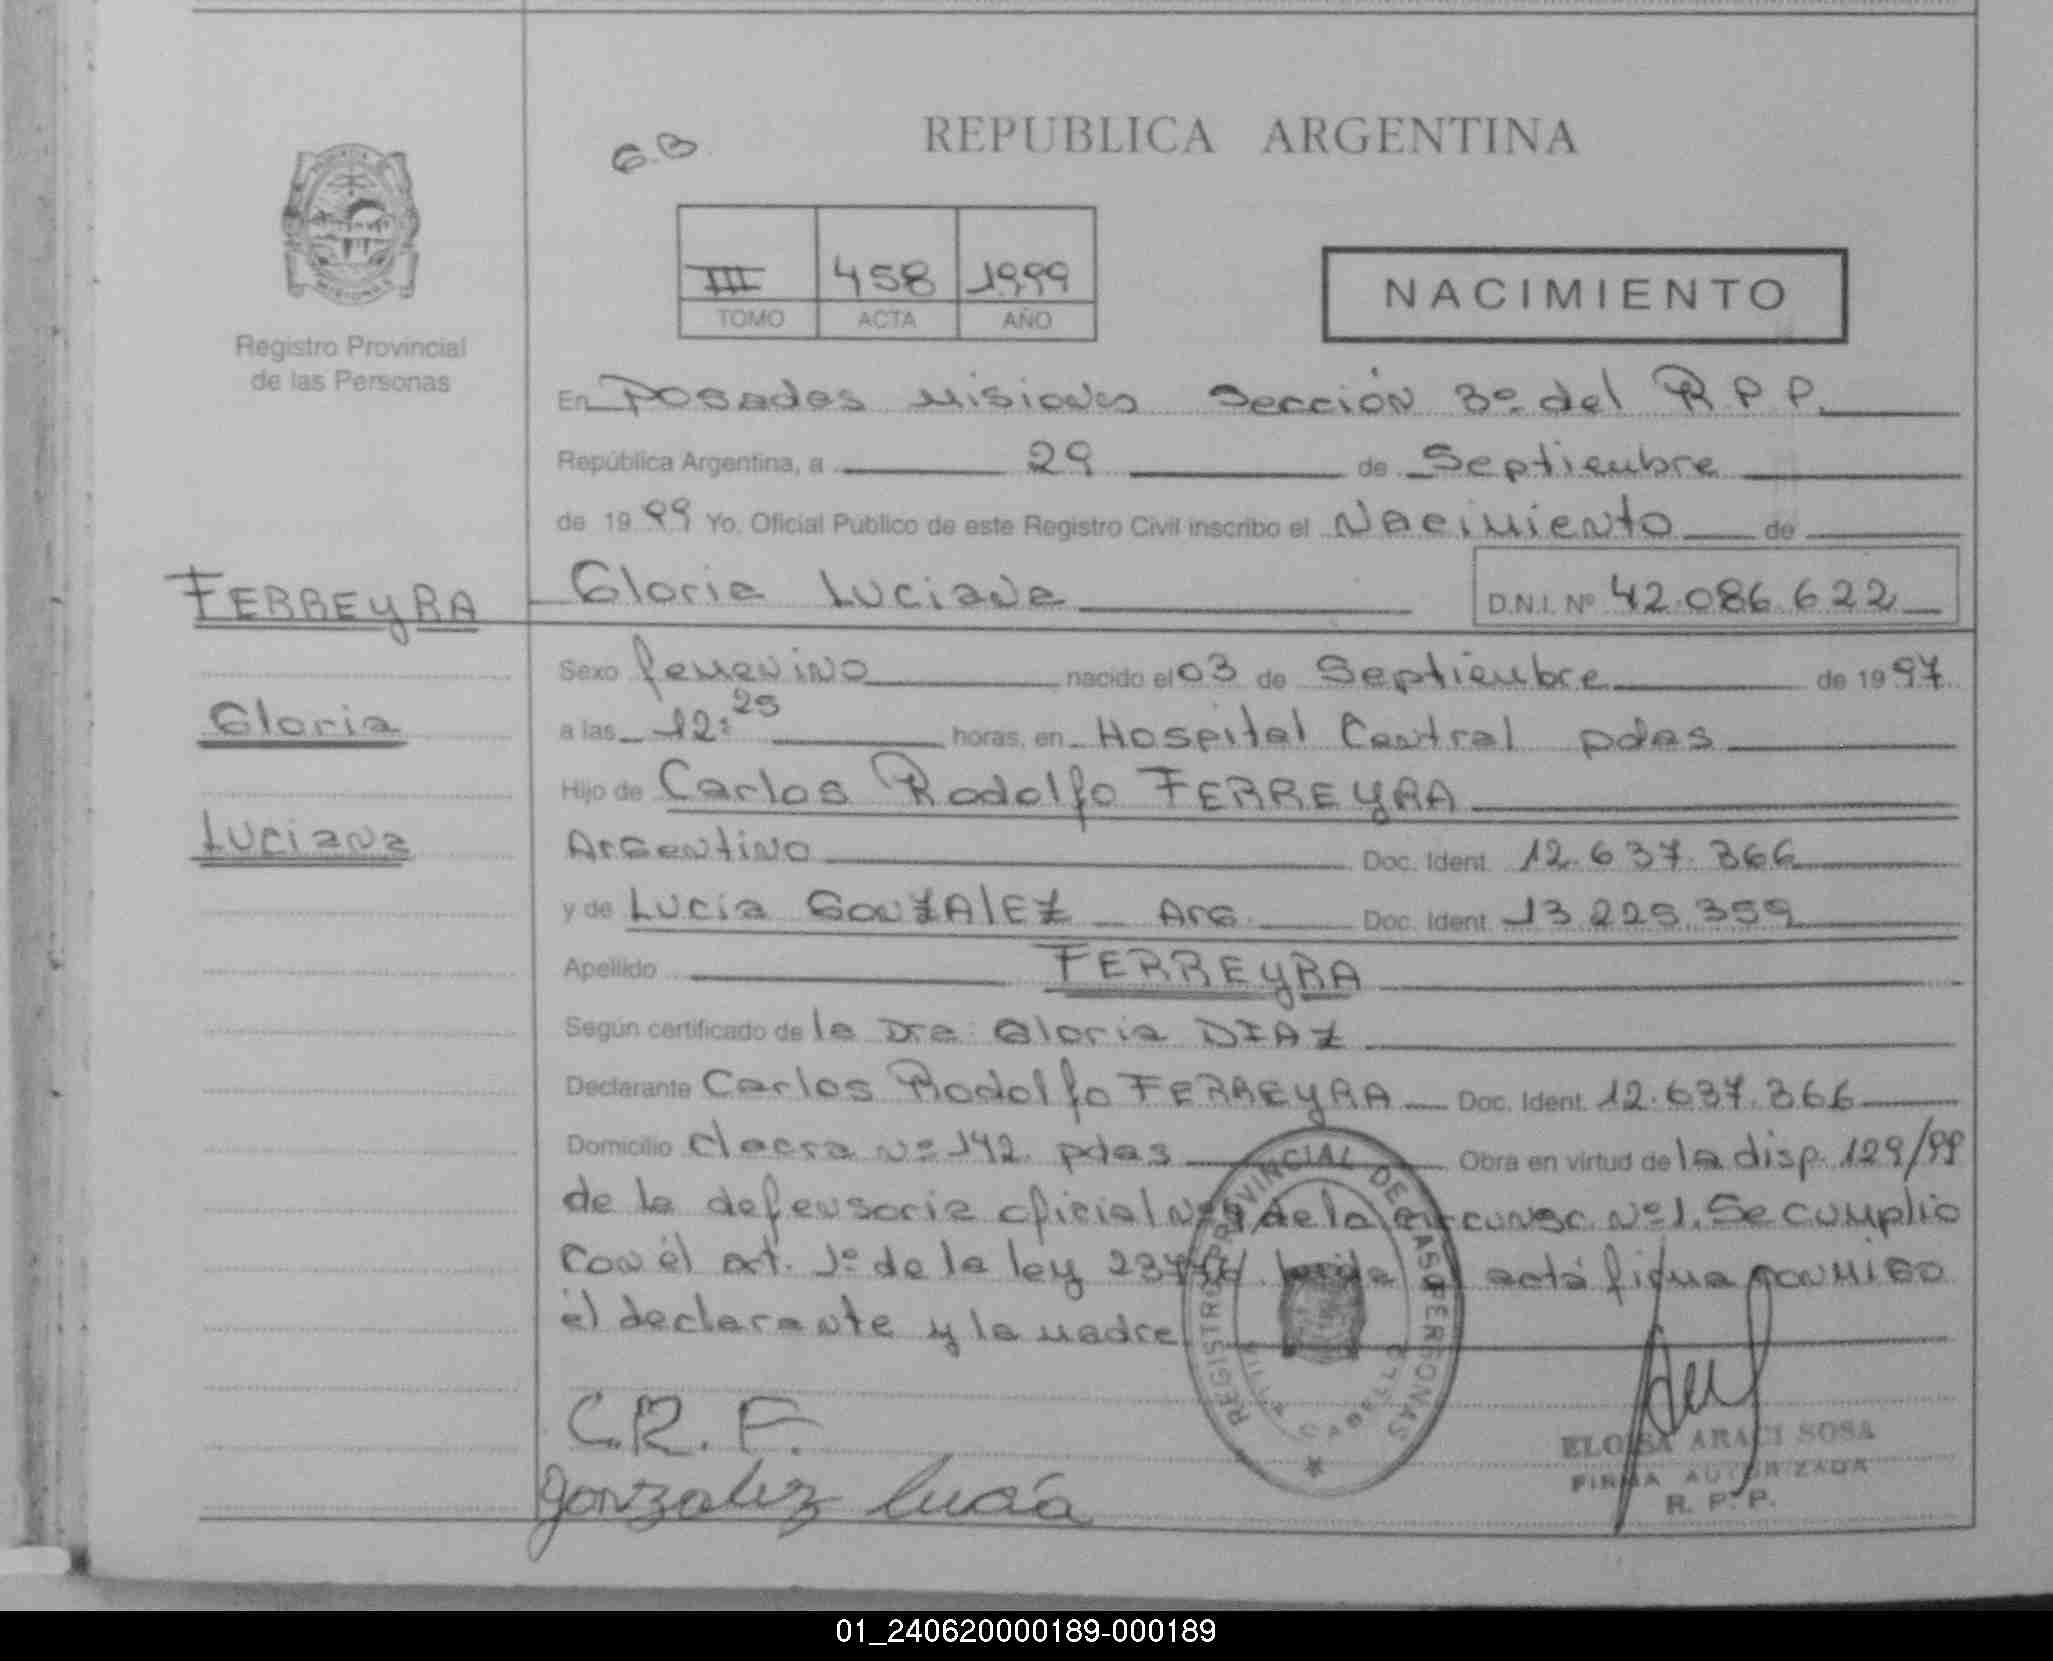 REPUBLICA ARGENTINA
G.B
III 458 1999
TOMO ACTA AÑO
NACIMIENTO
MISIONES
Registro Provincial
de las Personas
En Posadas Misiones Sección 3º del R P P.
República Argentina, a 29 de Septiembre
de 1999 Yo. Oficial Público de este Registro Civil inscribo el Nacimiento de
FERREYRA
Gloria Luciana D.N.I. Nº 42.086.622
Sexo femenino nacido el 03 de Septiembre de 1997
Gloria
a las 12:25 horas, en Hospital Central pdas
Hijo de Carlos Rodolfo FERREYRA
Luciana
Argentino Doc. Ident. 12.637.366
y de Lucia GONZAlEZ Arg. Doc. Ident. 13.225.359
Apellido FERREYRA
Según certificado de la Dra. Gloria DIAZ
Declarante Carlos Rodolfo FERREYRA Doc. Ident. 12.637.366
Domicilio chacra Nº 142. pdas Obra en virtud de la disp. 129/99
de la defensoria oficial Nº de la circunsc. Nº 1. Se cumplio
con el art. 1º de la ley acta firma conmigo
el declarante y la madre
REGISTRO PROVINCIAL DE LAS PERSONAS
C.R.F.
gonzalez lucía
ELOISA ARACI SOSA
FIRMA AUTORIZADA
R. P. P.
01_240620000189-000189